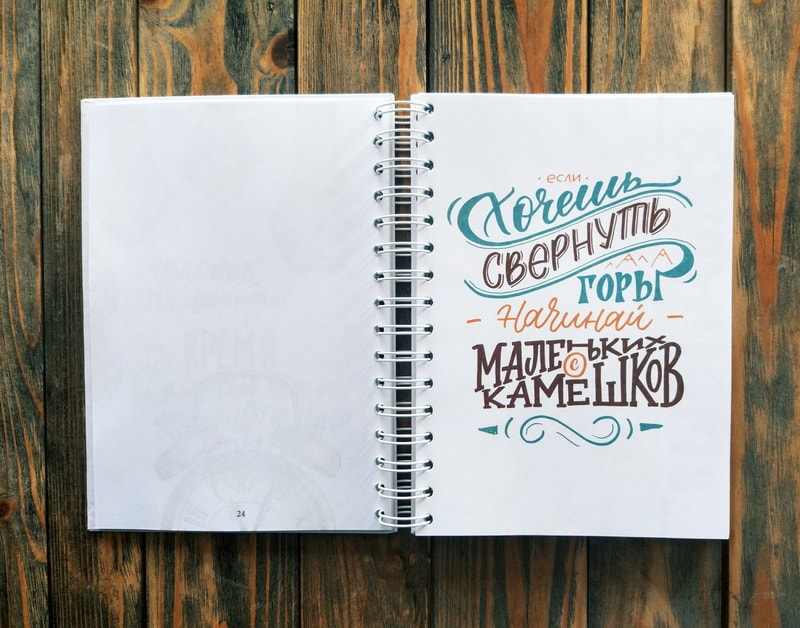 24
· если ·
Хочешь
СВЕРНУТЬ
ГОРЫ
- Начинай -
С
МАЛЕНЬКИХ
КАМЕШКОВ